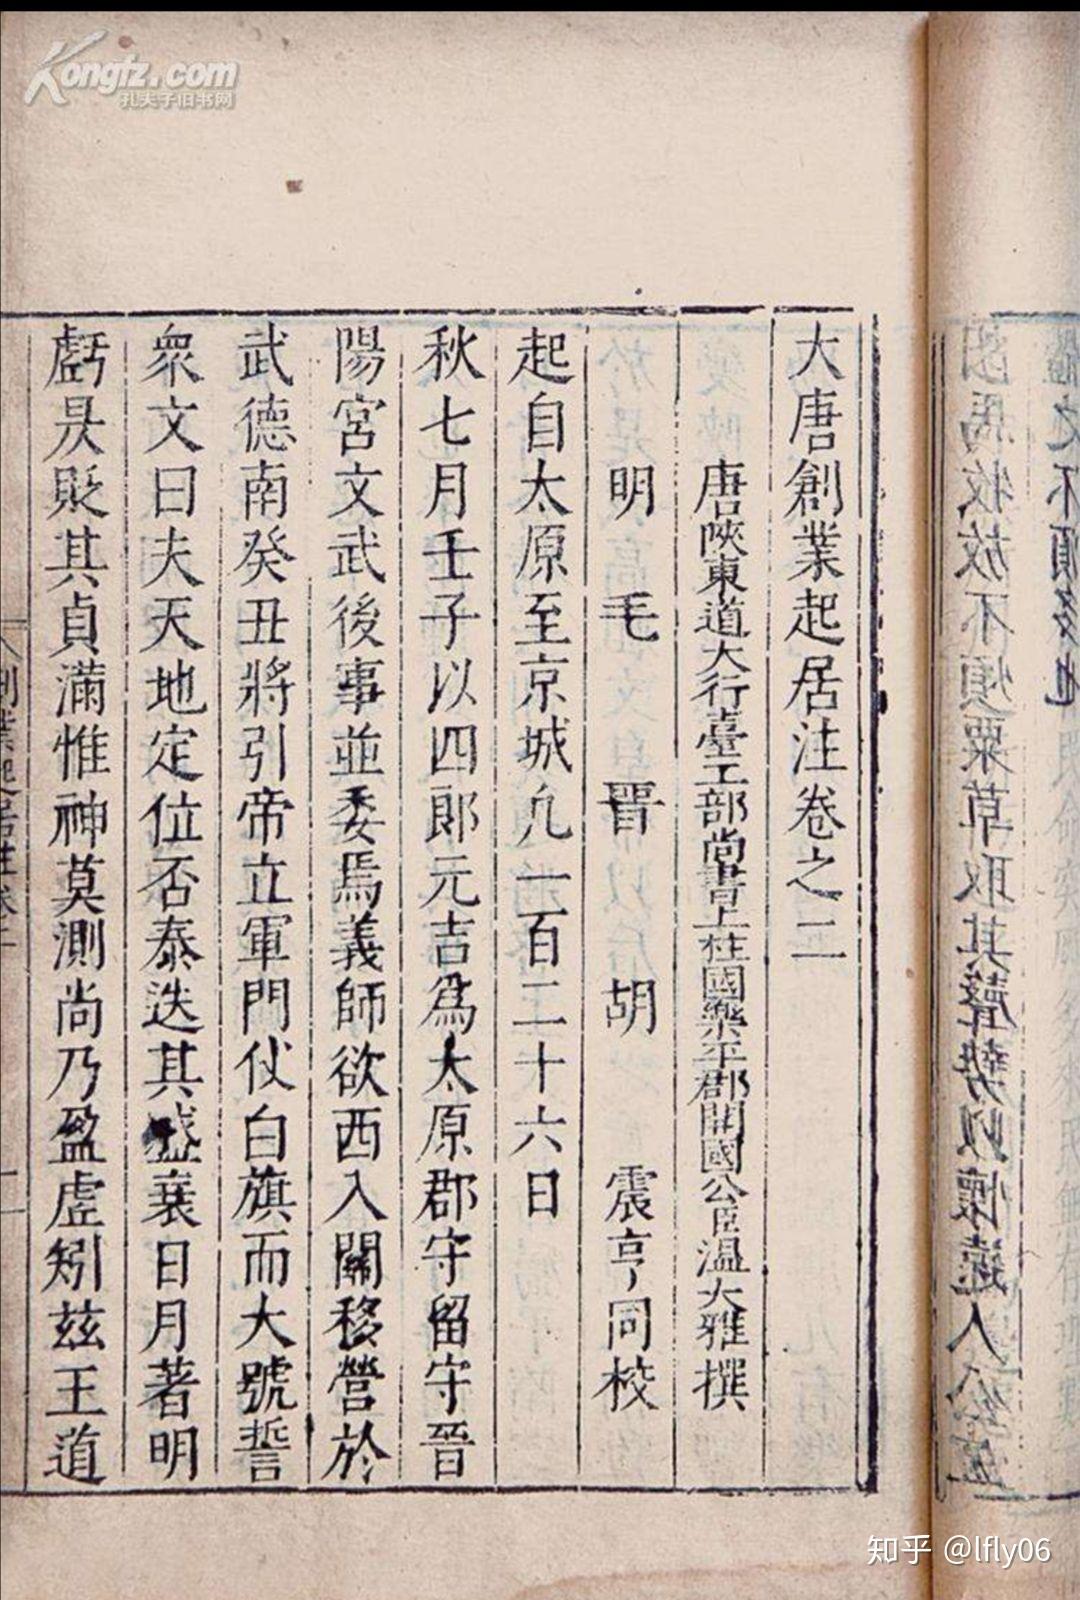 Kongfz.com
孔夫子旧书网
大唐創業起居注卷之二
唐陝東道大行臺工部尚書上柱國樂平郡開國公臣温大雅撰
明毛晉胡震亨同校
起自太原至京城凡一百二十六日
秋七月壬子以四郎元吉爲太原郡守留守晉
陽宮文武後事並委焉義師欲西入關移營於
武德南癸丑將引帝立軍門仗白旗而大號誓
衆文曰夫天地定位否泰迭其盛衰日月著明
虧昃貶其貞滿惟神莫測尚乃盈虛矧兹王道
知乎 @lfly06